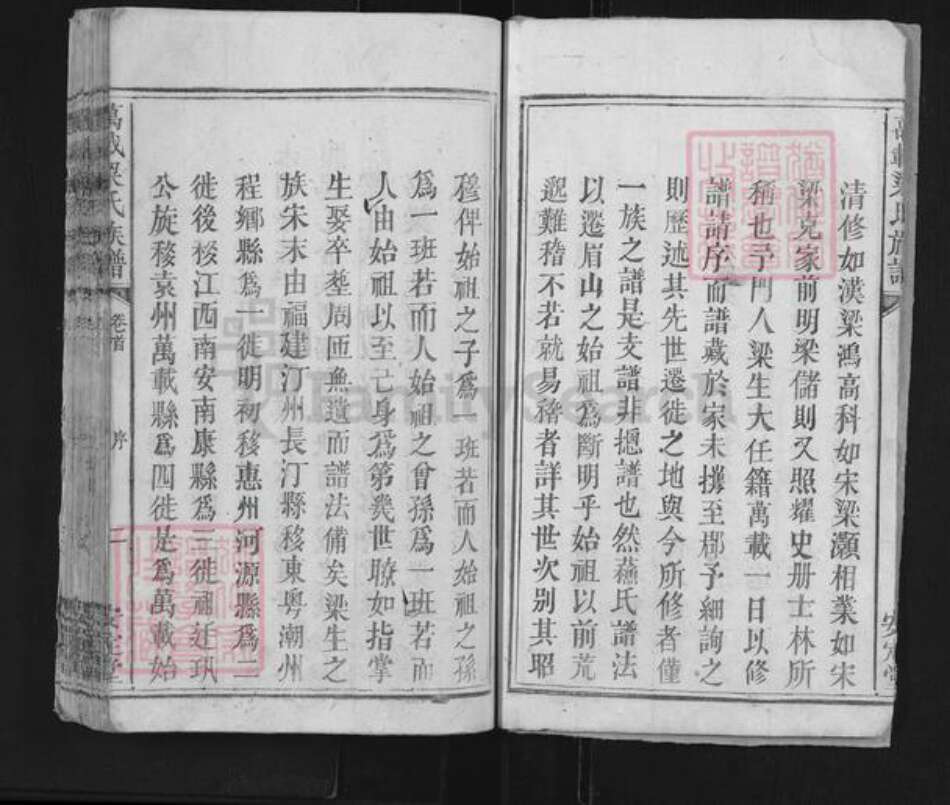 清修如漢梁鴻高科如宋梁灝相業如宋
梁克家前明梁儲則又照耀史册士林所
稱也予門人梁生大任籍萬載一日以修
譜請序而譜藏於家未攜至郡予細詢之
則歷述其先世遷徙之地與今所修者僅
一族之譜是支譜非揔譜也然蘓氏譜法
以遷眉山之始祖爲斷明乎始祖以前荒
邈難稽不若就易稽者詳其世次别其昭
安定堂
萬載梁氏族譜
卷首
序
二
安定堂
穆俾始祖之子爲一班若而人始祖之孫
爲一班若而人始祖之曾孫爲一班若而
人由始祖以至己身爲第幾世瞭如指掌
生娶卒塟周匝無遺而譜法備矣梁生之
族宋末由福建汀州長汀縣移東粤潮州
程鄉縣爲一徙明初移惠州河源縣爲二
徙後移江西南安南康縣爲三徙祖廷玑
公旋移袁州萬載縣爲四徙是爲萬載始
FamilySearch